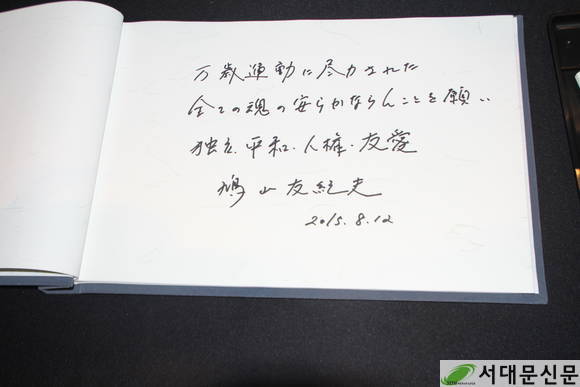 万歳運動に尽力された
全ての魂の安らかならんことを願い
独立、平和、人権、友愛
鳩山友紀夫
2015.8.12
서대문신문